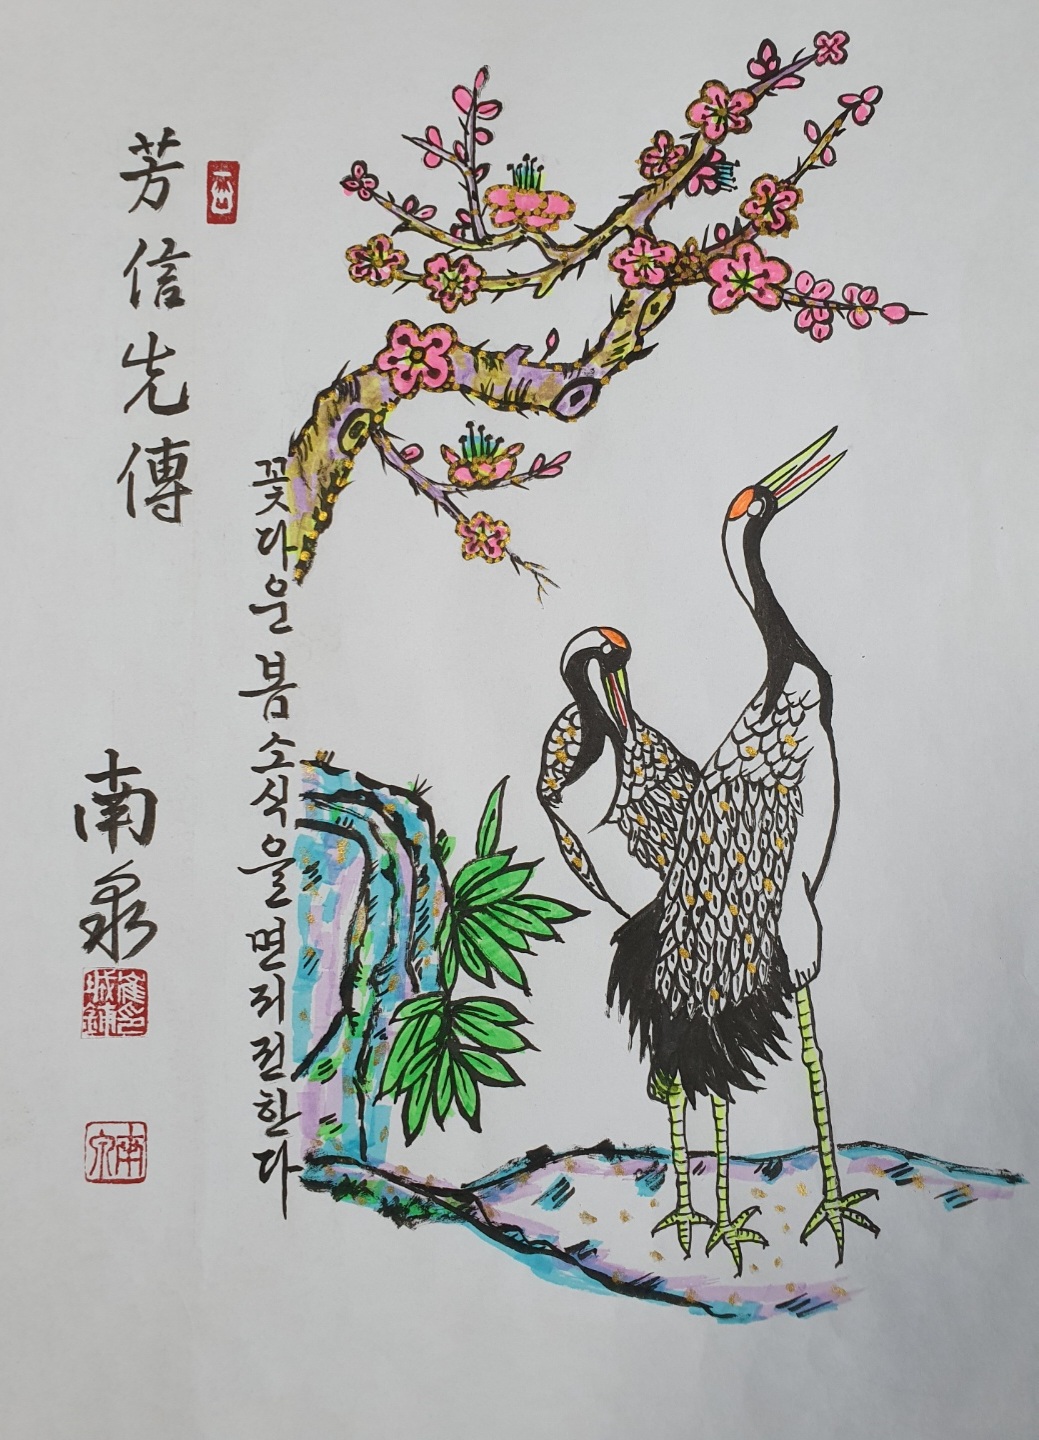 芳信先傳
꽃다운 봄소식을 먼저 전한다
南泉